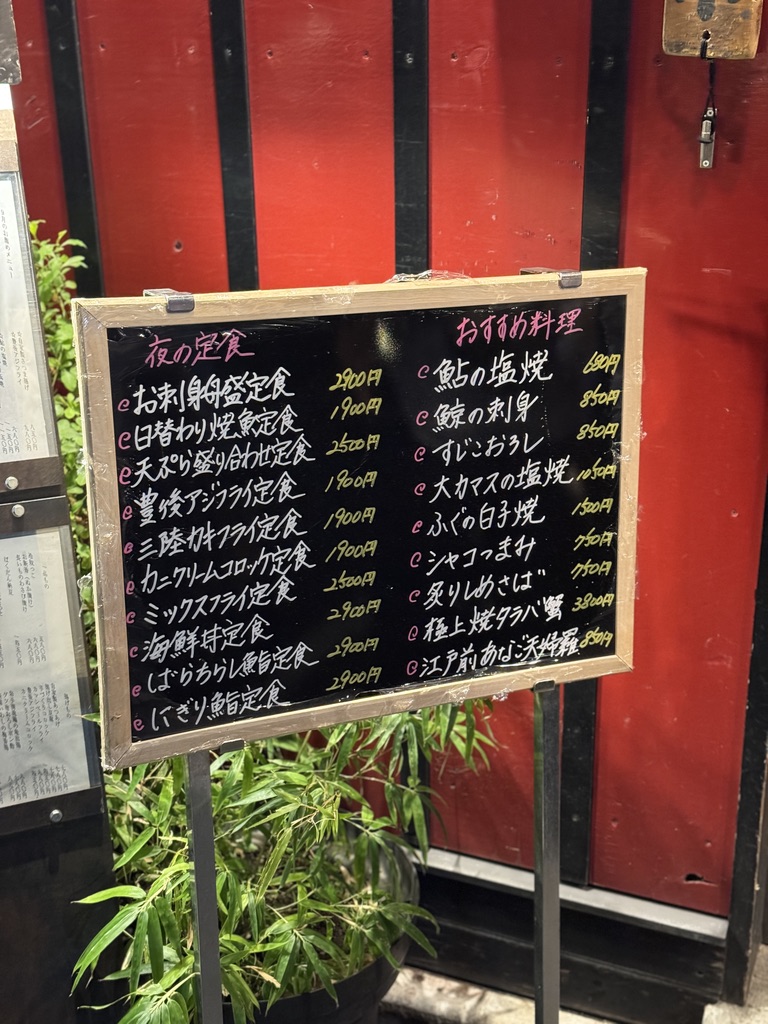 夜の定食
お刺身舟盛定食 2900円
日替わり焼魚定食 1900円
天ぷら盛り合わせ定食 2500円
豊後アジフライ定食 1900円
三陸カキフライ定食 1900円
カニクリームコロッケ定食 1900円
ミックスフライ定食 2500円
海鮮丼定食 2900円
ばらちらし鮨定食 2900円
にぎり鮨定食 2900円
おすすめ料理
鮎の塩焼 680円
鯨の刺身 850円
すじこおろし 850円
大カマスの塩焼 1050円
ふぐの白子焼 1500円
シャコつまみ 750円
炙りしめさば 750円
極上焼タラバ蟹 3800円
江戸前あなご天婦羅 850円